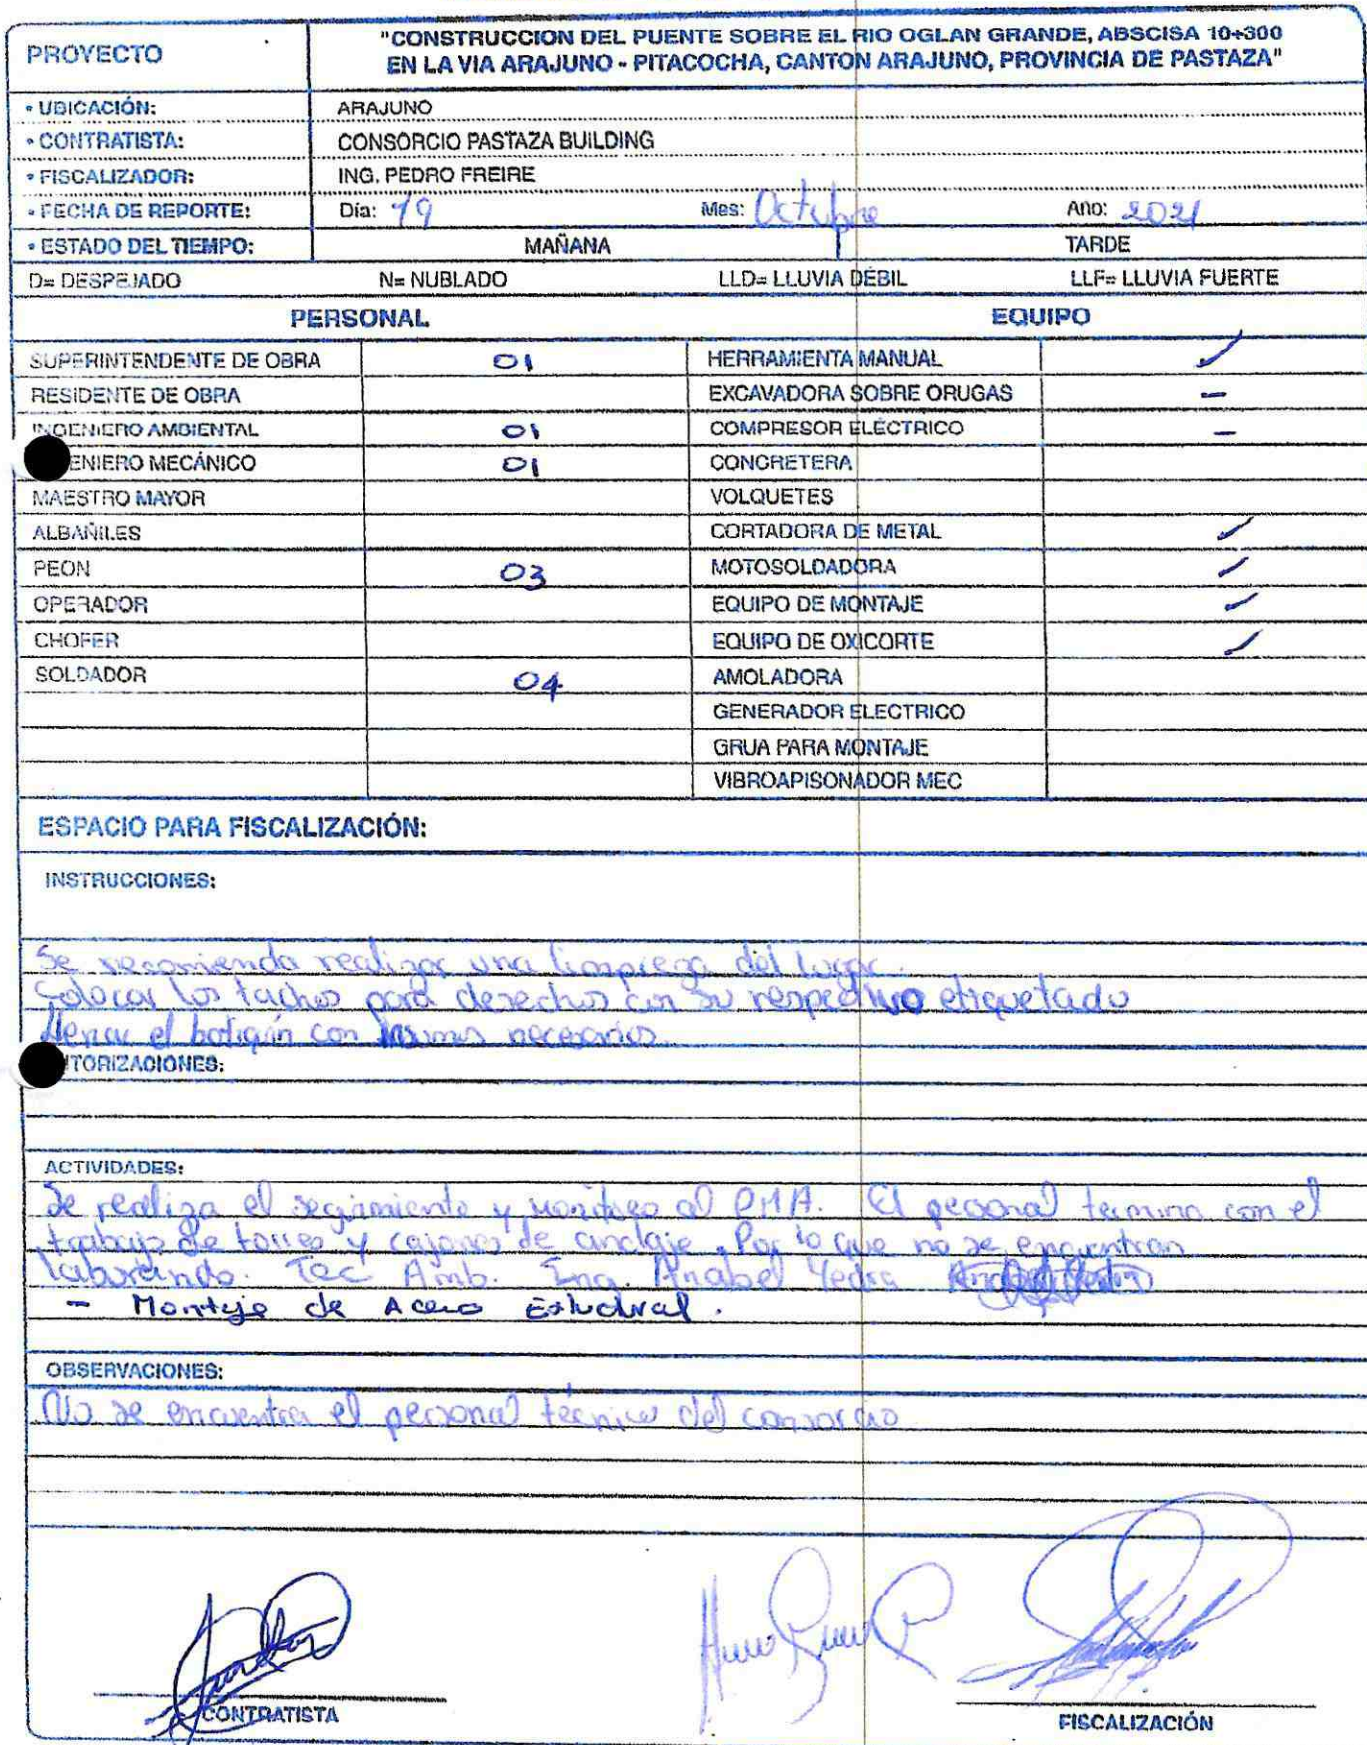 PROYECTO
"CONSTRUCCION DEL PUENTE SOBRE EL RIO OGLAN GRANDE, ABSCISA 10+300
EN LA VIA ARAJUNO - PITACOCHA, CANTON ARAJUNO, PROVINCIA DE PASTAZA"
• UBICACIÓN: ARAJUNO
• CONTRATISTA: CONSORCIO PASTAZA BUILDING
• FISCALIZADOR: ING. PEDRO FREIRE
• FECHA DE REPORTE: Día: 19 Mes: Octubre Año: 2021
• ESTADO DEL TIEMPO: MAÑANA TARDE
D= DESPEJADO N= NUBLADO LLD= LLUVIA DÉBIL LLF= LLUVIA FUERTE
PERSONAL EQUIPO
SUPERINTENDENTE DE OBRA 01 HERRAMIENTA MANUAL ✓
RESIDENTE DE OBRA EXCAVADORA SOBRE ORUGAS -
INGENIERO AMBIENTAL 01 COMPRESOR ELÉCTRICO -
ENIERO MECÁNICO 01 CONCRETERA
MAESTRO MAYOR VOLQUETES
ALBAÑILES CORTADORA DE METAL ✓
PEON 03 MOTOSOLDADORA ✓
OPERADOR EQUIPO DE MONTAJE ✓
CHOFER EQUIPO DE OXICORTE ✓
SOLDADOR 04 AMOLADORA
GENERADOR ELECTRICO
GRUA PARA MONTAJE
VIBROAPISONADOR MEC
ESPACIO PARA FISCALIZACIÓN:
INSTRUCCIONES:
Se recomienda realizar una limpieza del lugar.
Colocar los tachos para desechos con su respectivo etiquetado
llenar el botiquín con insumos necesarios.
TORIZACIONES:
ACTIVIDADES:
Se realiza el seguimiento y monitoreo al PMA. El personal termina con el
trabajo de torres y cajones de anclaje. Por lo que no se encuentran
laborando. Tec Amb. Ing. Anabel Yedra
- Montaje de Acero Estuctural.
OBSERVACIONES:
No se encuentra el personal técnico del consorcio
CONTRATISTA
FISCALIZACIÓN